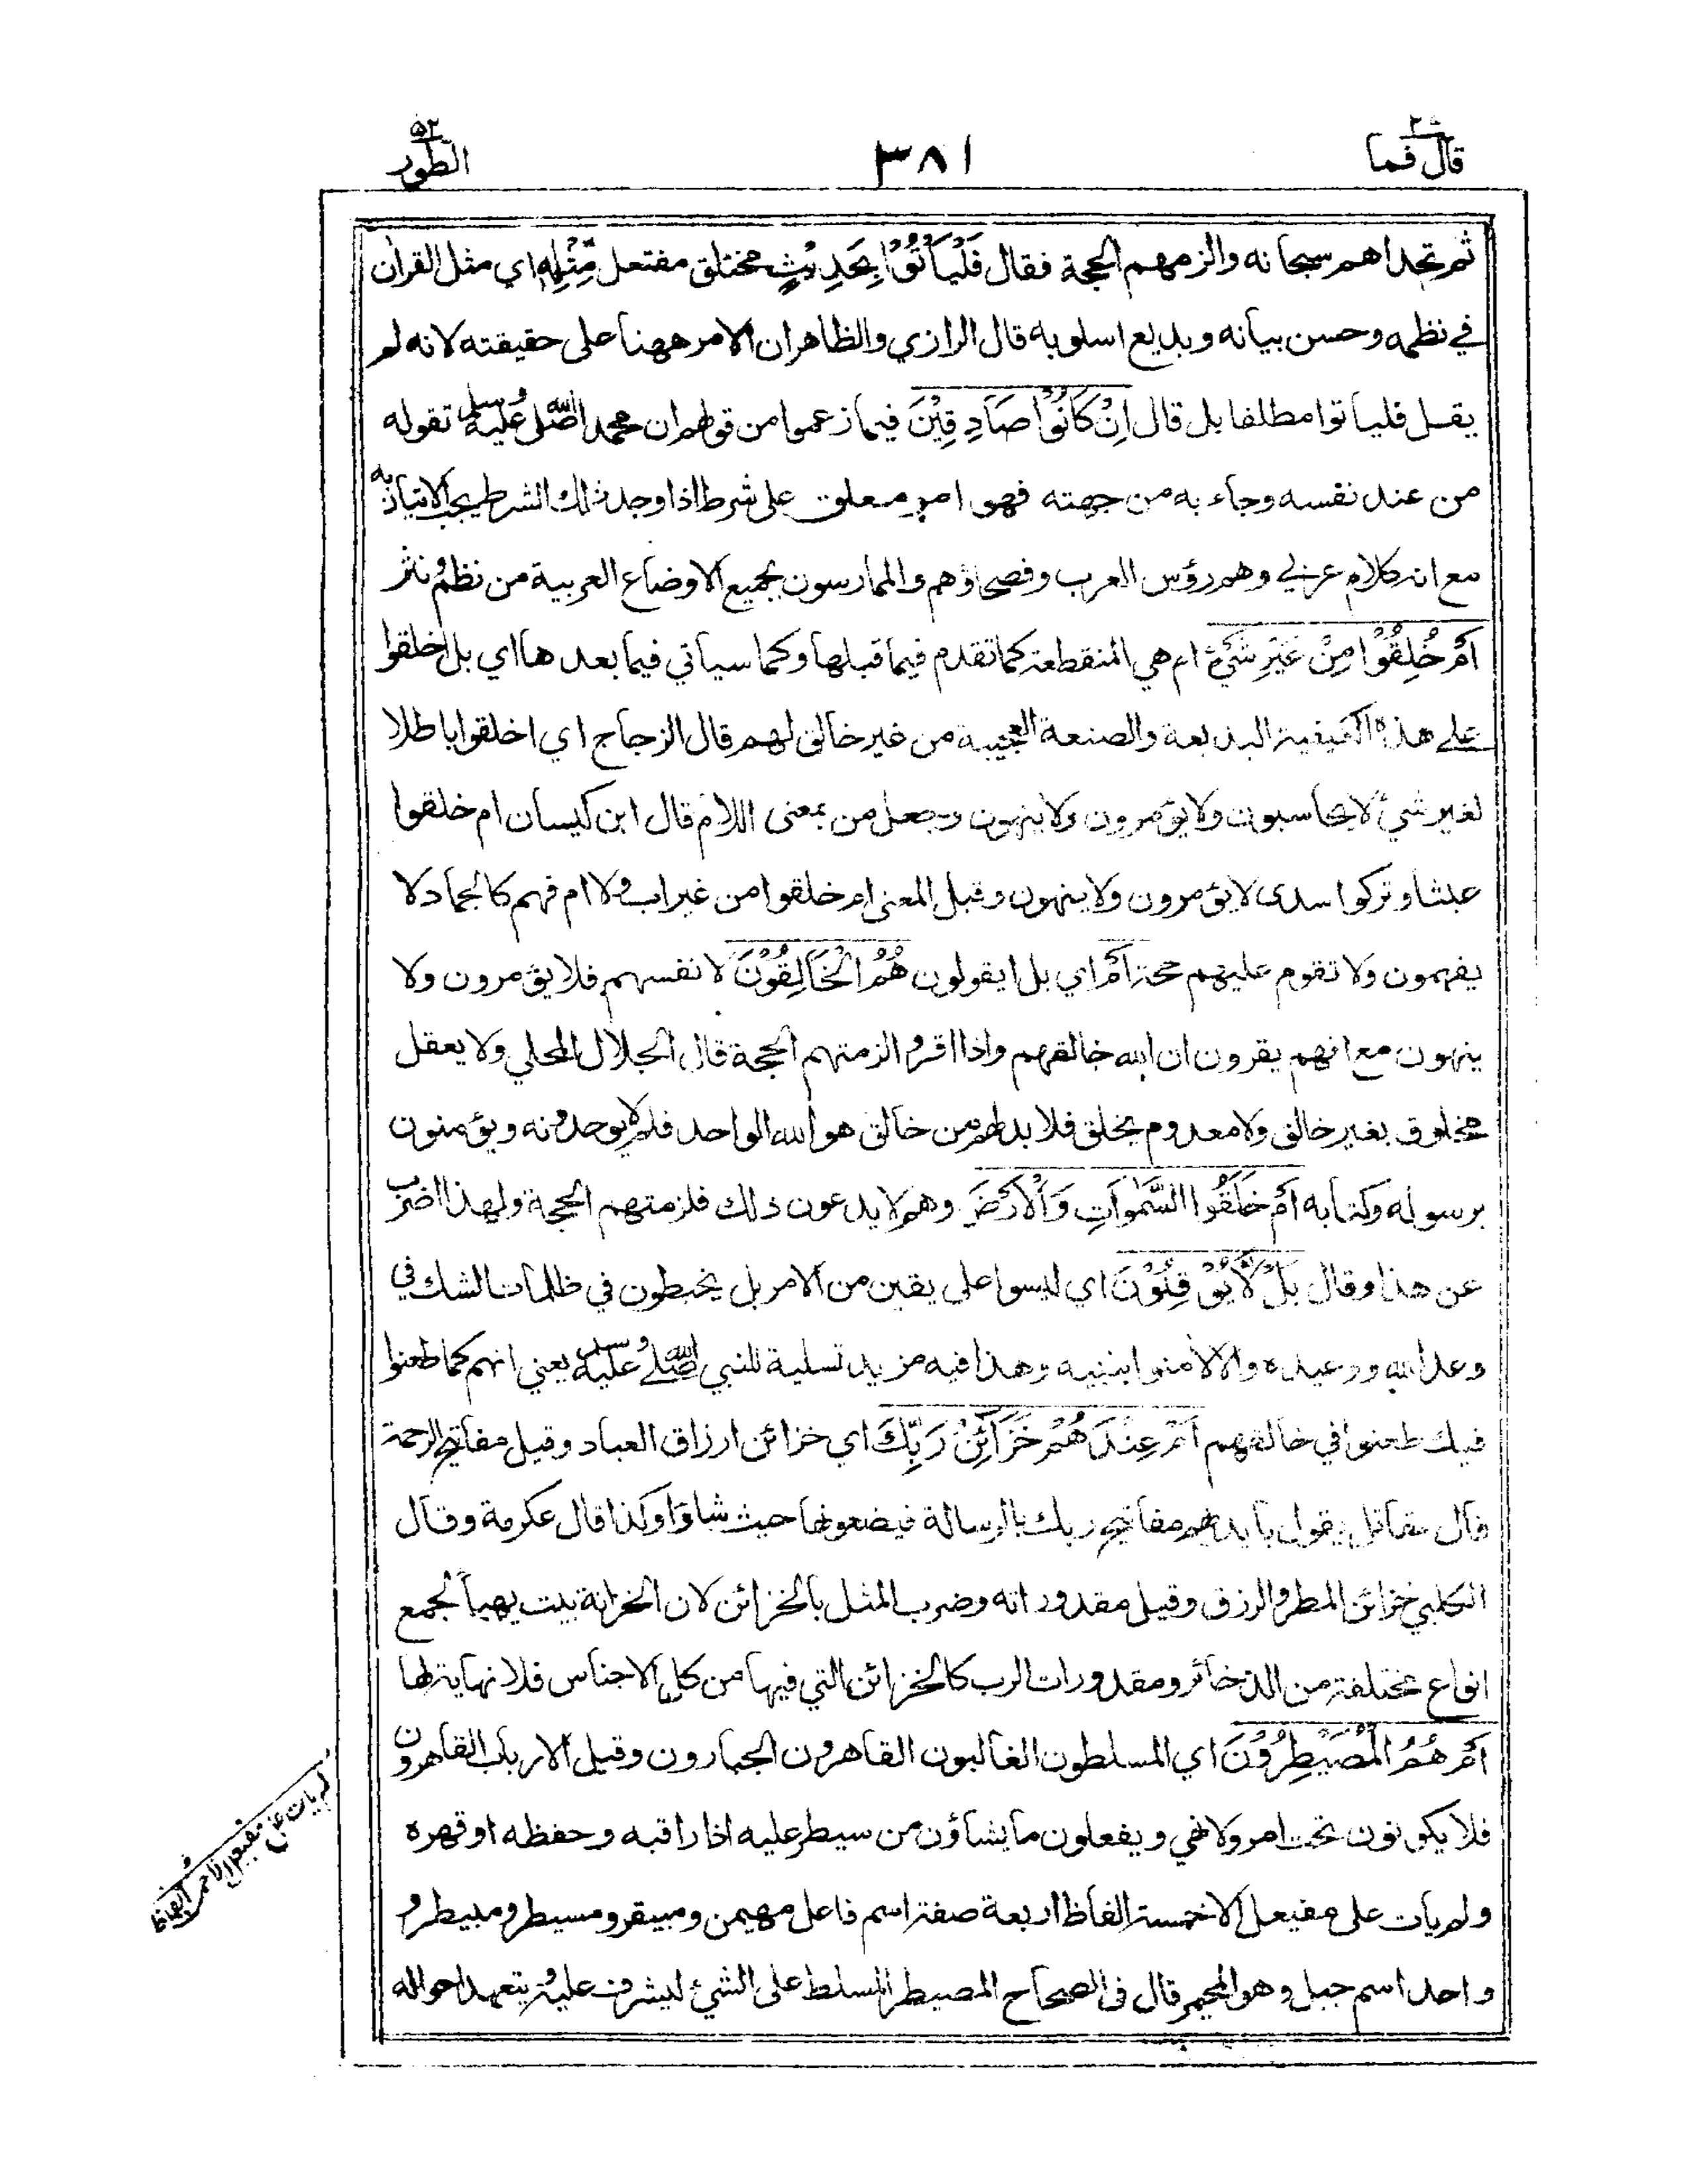 قال فما ٢٧
٣٨١
الطور ٥٢
ثم تحداهم سبحانه والزمهم الحجة فقال فَلْيَأْتُوْا بِحَدِيْثٍ مختلق مفتعل مِّثْلِهِ اي مثل القرآن
في نظمه وحسن بيانه وبديع اسلوبه قال الرازي والظاهر ان الامر ههنا على حقيقته لانه لم
يقل فليأتوا مطلقا بل قال اِنْ كَانُوْا صَادِقِيْنَ فيما زعموا من قولهم ان محمدا صلى الله عليه وسلم تقوله
من عند نفسه وجاء به من جهته فهو امر معلق على شرط اذا وجد ذلك الشرط يجب الاتيان به
مع انه كلام عربي وهم رؤس العرب وفصحاؤهم والممارسون بجميع الاوضاع العربية من نظم ونثر
اَمْ خُلِقُوْا مِنْ غَيْرِ شَيْءٍ ام هي المنقطعة كما تقدم فيما قبلها وكما سيأتي فيما بعدها اي بل اخلقوا
على هذه الكيفية البديعة والصنعة العجيبة من غير خالق لهم قال الزجاج اي اخلقوا باطلا
لغير شيء لا يحاسبون ولا يؤمرون ولا ينهون وجعل من بمعنى اللام قال ابن كيسان ام خلقوا
عبثا وتركوا سدى لا يؤمرون ولا ينهون وقيل المعنى ام خلقوا من غير اب ولا ام فهم كالجماد لا
يفهمون ولا تقوم عليهم حجة اَمْ اي بل ايقولون هُمُ الْخَالِقُوْنَ لانفسهم فلا يؤمرون ولا
ينهون مع انهم يقرون ان الله خالقهم واذا اقروا لزمتهم الحجة قال الجلال المحلي ولا يعقل
مخلوق بغير خالق ولا معدوم يخلق فلا بد لهم من خالق هو الله الواحد فلم لا يوحدونه ويؤمنون
برسوله وكتابه اَمْ خَلَقُوا السَّمٰوَاتِ وَالْاَرْضَ وهم لا يدعون ذلك فلزمتهم الحجة ولهذا اضرب
عن هذا وقال بَلْ لَّا يُوْقِنُوْنَ اي ليسوا على يقين من الامر بل يخبطون في ظلمات الشك في
وعد الله ووعيده والا لآمنوا بنبيه وهذا فيه مزيد تسلية للنبي صلى الله عليه وسلم يعني انهم كما طعنوا
فيك طعنوا في خالقهم اَمْ عِنْدَهُمْ خَزَآئِنُ رَبِّكَ اي خزائن ارزاق العباد وقيل مفاتيح الرحمة
قال مقاتل يقول بايديهم مفاتيح ربك بالرسالة فيضعونها حيث شاؤا وكذا قال عكرمة وقال
الكلبي خزائن المطر والرزق وقيل مقدوراته وضرب المثل بالخزائن لان الخزانة بيت يهيأ لجمع
انواع مختلفة من الذخائر ومقدورات الرب كالخزائن التي فيها من كل الاجناس فلا نهاية لها
اَمْ هُمُ الْمُصَيْطِرُوْنَ اي المسلطون الغالبون القاهرون الجبارون وقيل الارباب القاهرون
فلا يكونون تحت امر ولا نهي ويفعلون ما يشاؤن من سيطر عليه اذا راقبه وحفظه او قهره
ولم يأت على مفيعل الا خمسة الفاظ اربعة صفة اسم فاعل مهيمن ومبيقر ومسيطر ومبيطر و
واحد اسم جبل وهو المجيمر قال في الصحاح المصيطر المسلط على الشيء ليشرف عليه ويتعهد احواله
لم يأت على مفيعل الا خمسة الفاظ